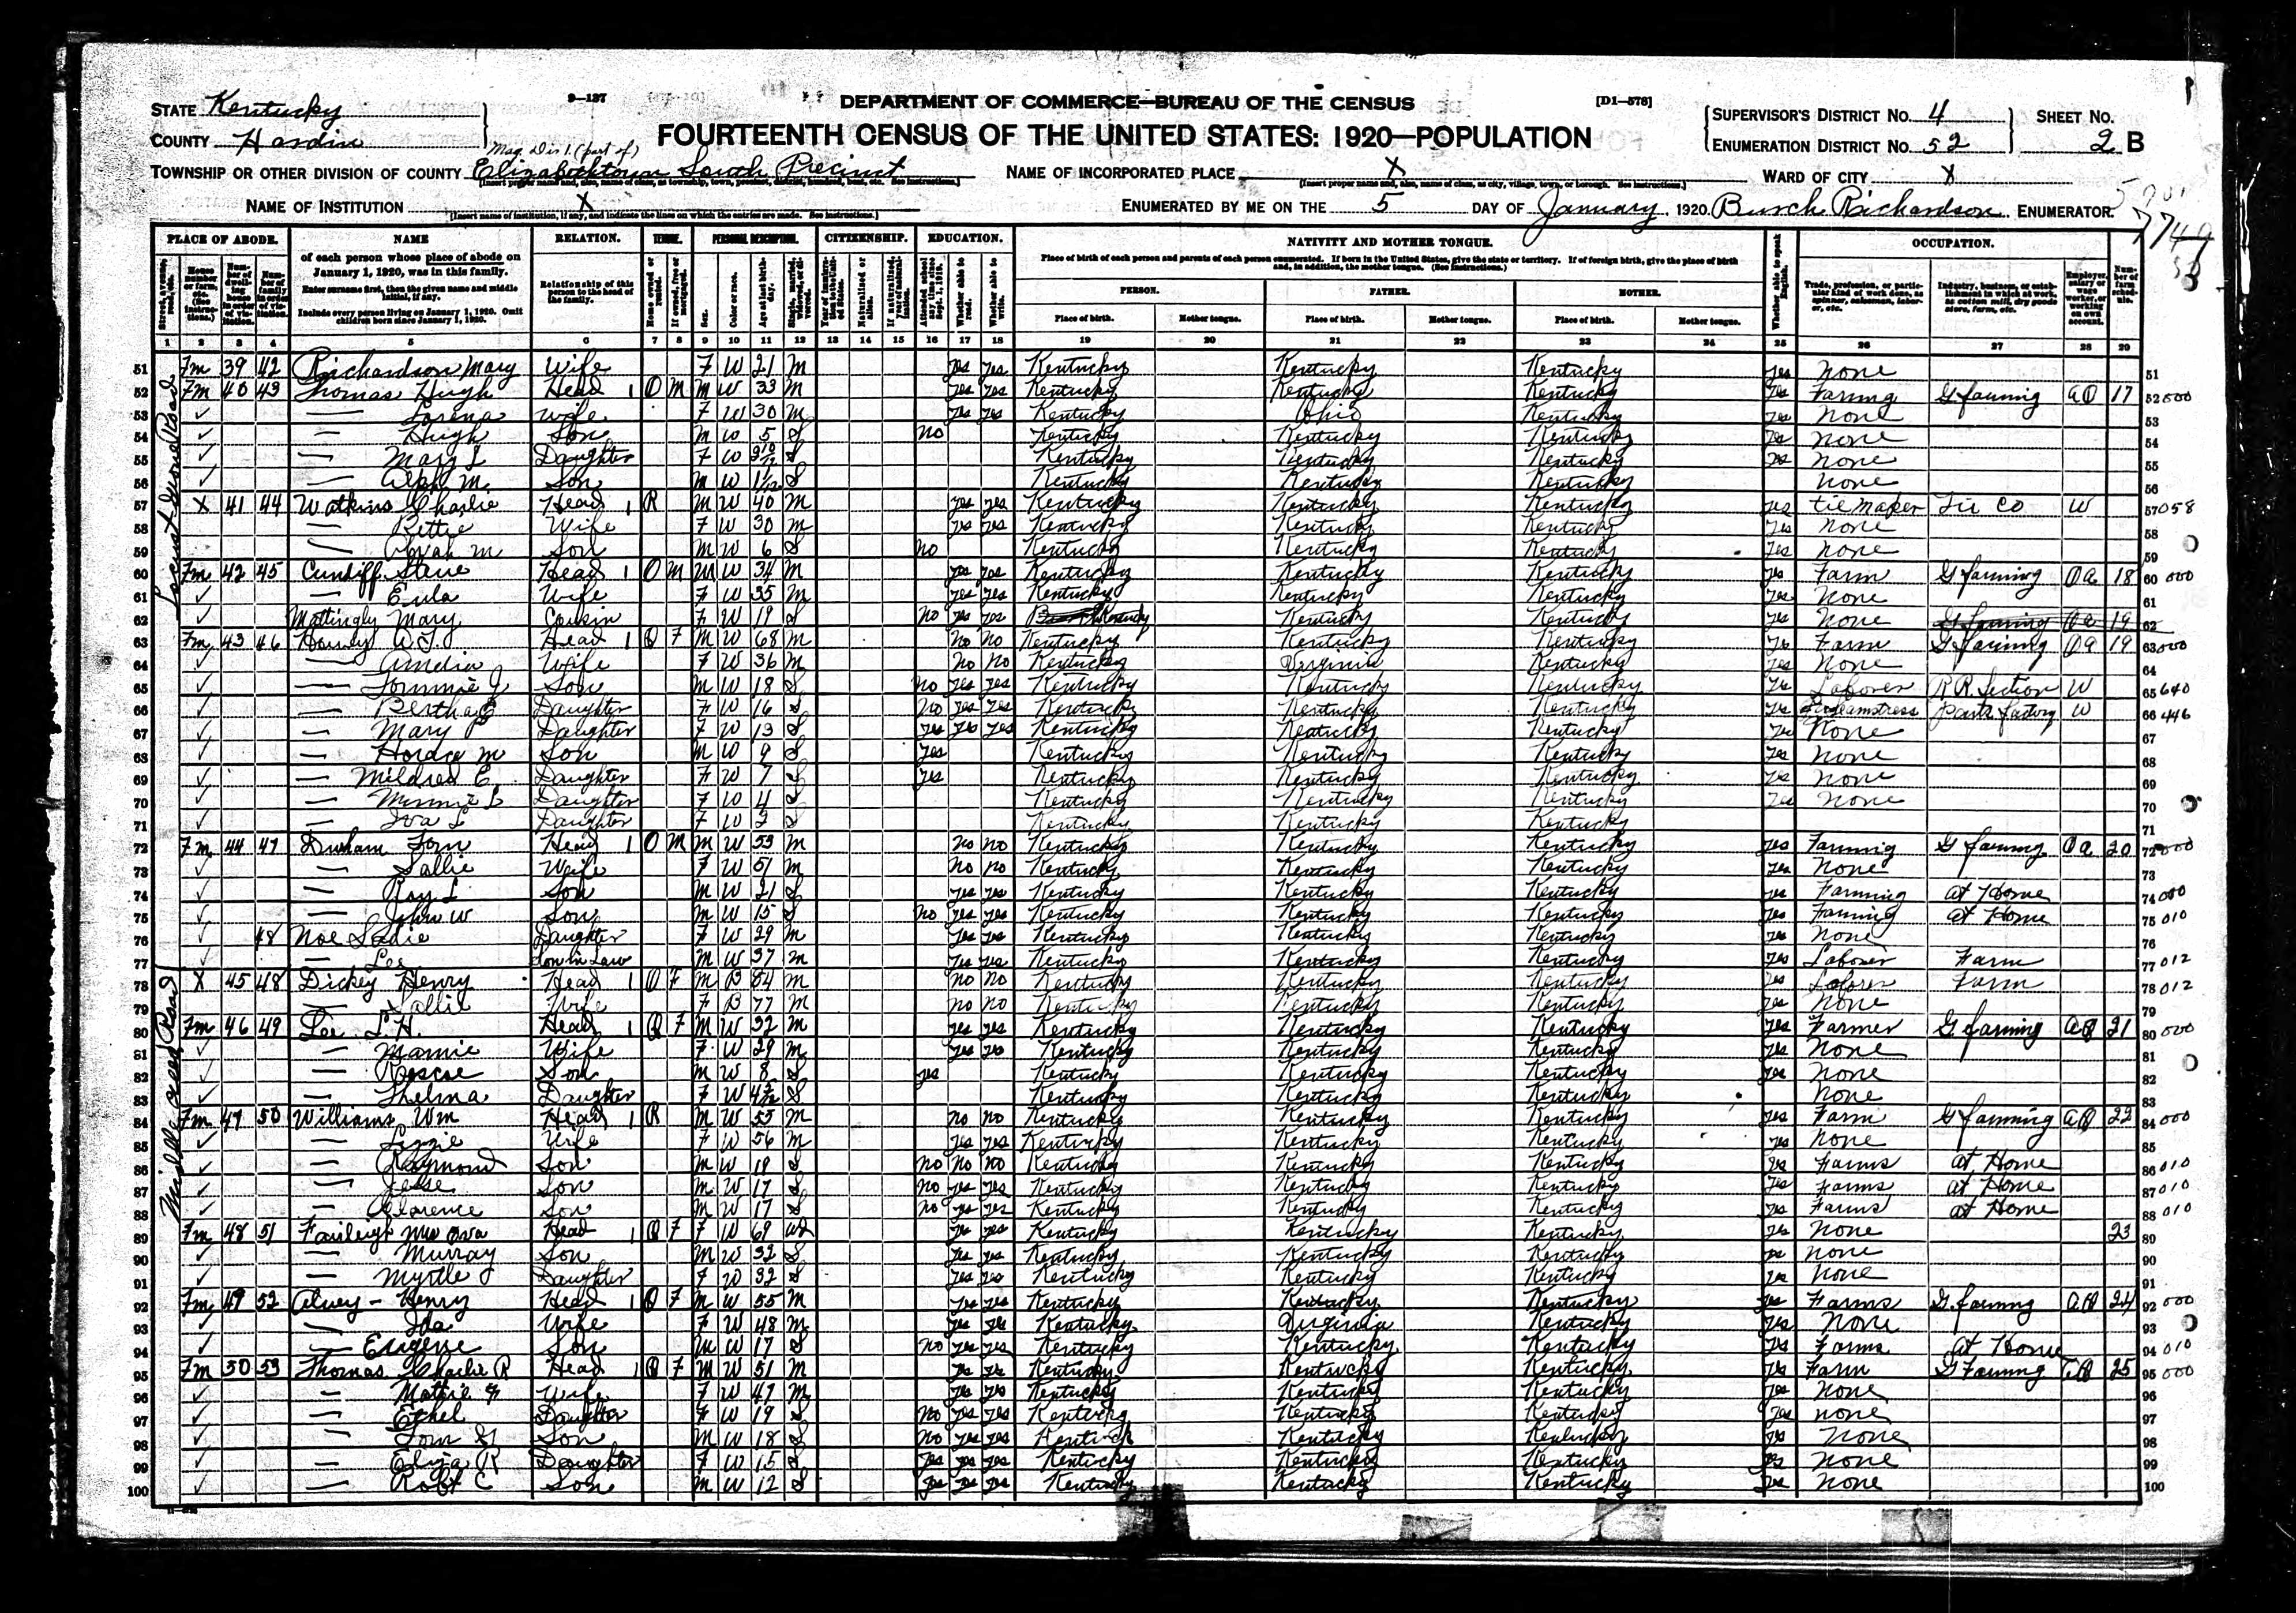 9—137
[D1—578]
DEPARTMENT OF COMMERCE—BUREAU OF THE CENSUS
FOURTEENTH CENSUS OF THE UNITED STATES: 1920—POPULATION
STATE Kentucky
COUNTY Hardin
Mag Dis 1. (part of)
TOWNSHIP OR OTHER DIVISION OF COUNTY Elizabethtown South Precinct
NAME OF INCORPORATED PLACE X
SUPERVISOR'S DISTRICT No. 4
ENUMERATION DISTRICT No. 52
SHEET No. 2 B
WARD OF CITY X
NAME OF INSTITUTION X
ENUMERATED BY ME ON THE 5 DAY OF January, 1920. Burch Richardson, ENUMERATOR.
PLACE OF ABODE. NAME RELATION. TENURE. PERSONAL DESCRIPTION. CITIZENSHIP. EDUCATION. NATIVITY AND MOTHER TONGUE. OCCUPATION.
of each person whose place of abode on January 1, 1920, was in this family.
Enter surname first, then the given name and middle initial, if any.
Include every person living on January 1, 1920. Omit children born since January 1, 1920.
Relationship of this person to the head of the family.
Place of birth of each person and parents of each person enumerated. If born in the United States, give the state or territory. If of foreign birth, give the place of birth and, in addition, the mother tongue. (See Instructions.)
PERSON. FATHER. MOTHER.
Place of birth. Mother tongue. Place of birth. Mother tongue. Place of birth. Mother tongue.
1 2 3 4 5 6 7 8 9 10 11 12 13 14 15 16 17 18 19 20 21 22 23 24 25 26 27 28 29
51 Fm 39 42 Richardson Mary Wife F W 21 M yes yes Kentucky Kentucky Kentucky yes None 51
52 Fm 40 43 Thomas Hugh Head 1 O M M W 33 M yes yes Kentucky Kentucky Kentucky yes Faring G farming O A 17 52 000
53 — Lorena Wife F W 30 M yes yes Kentucky Ohio Kentucky yes None 53
54 — Hugh Son M W 5 S No Kentucky Kentucky Kentucky yes None 54
55 — Mary L Daughter F W 3 10/12 S Kentucky Kentucky Kentucky yes None 55
56 — M. Son M W S Kentucky Kentucky Kentucky None 56
57 X 41 44 Watkins Charlie Head 1 R M W 40 M yes yes Kentucky Kentucky Kentucky yes tie maker Tie Co W 57 058
58 — Bettie Wife F W 30 M yes yes Kentucky Kentucky Kentucky yes None 58
59 — M Son M W 6 S No Kentucky Kentucky Kentucky yes None 59
60 Fm 42 45 Cundiff Steve Head 1 O M M W 34 M yes yes Kentucky Kentucky Kentucky yes Farm G farming O A 18 60 000
61 — Eula Wife F W 35 M yes yes Kentucky Kentucky Kentucky yes None 61
62 Mattingly Mary Cousin F W 19 S No yes yes Kentucky Kentucky Kentucky yes None G farming O A 19 62
63 Fm 43 46 Head 1 O F M W 68 M No No Kentucky Kentucky Kentucky yes Farm G farming O A 19 63 000
64 — Amelia Wife F W 36 M No No Kentucky Virginia Kentucky yes None 64
65 — Tommie J Son M W 18 S No yes yes Kentucky Kentucky Kentucky yes Laborer R R Section W 65 640
66 — Bertha E Daughter F W 16 S No yes yes Kentucky Kentucky Kentucky yes Seamstress pants factory W 66 446
67 — Mary Daughter F W 13 S yes yes yes Kentucky Kentucky Kentucky yes None 67
68 — Horace M Son M W 9 S yes Kentucky Kentucky Kentucky yes None 68
69 — Mildred E Daughter F W 7 S yes Kentucky Kentucky Kentucky yes None 69
70 — Minnie L Daughter F W 4 S Kentucky Kentucky Kentucky yes None 70
71 — Iva L Daughter F W 2 S Kentucky Kentucky Kentucky 71
72 Fm 44 47 Durham Tom Head 1 O M M W 53 M No No Kentucky Kentucky Kentucky yes Farming G farming O A 20 72 000
73 — Sallie Wife F W 51 M No No Kentucky Kentucky Kentucky yes None 73
74 — Roy L Son M W 21 S yes yes Kentucky Kentucky Kentucky yes Farming at Home 74 000
75 — John W Son M W 15 S No yes yes Kentucky Kentucky Kentucky yes Farming at Home 75 010
76 48 Noe Sadie Daughter F W 29 M yes yes Kentucky Kentucky Kentucky yes None 76
77 — Lee Son in Law M W 37 M yes yes Kentucky Kentucky Kentucky yes Laborer Farm 77 012
78 X 45 48 Dickey Henry Head 1 O F M B 84 M No No Kentucky Kentucky Kentucky yes Laborer Farm 78 012
79 — Sallie Wife F B 77 M No No Kentucky Kentucky Kentucky yes None 79
80 Fm 46 49 Lee L H. Head 1 O F M W 32 M yes yes Kentucky Kentucky Kentucky yes Farmer G farming O A 21 80 000
81 — Mamie Wife F W 29 M yes yes Kentucky Kentucky Kentucky yes None 81
82 — Roscoe Son M W 8 S yes Kentucky Kentucky Kentucky yes None 82
83 — Thelma Daughter F W S Kentucky Kentucky Kentucky None 83
84 Fm 47 50 Williams Wm Head 1 R M W 55 M No No Kentucky Kentucky Kentucky yes Farm G farming O A 22 84 000
85 — Lizzie Wife F W 56 M yes yes Kentucky Kentucky Kentucky yes None 85
86 — Raymond Son M W 19 S No No No Kentucky Kentucky Kentucky yes Farms at Home 86 010
87 — Jesse Son M W 17 S No yes yes Kentucky Kentucky Kentucky yes Farms at Home 87 010
88 — Clorence Son M W 17 S No yes yes Kentucky Kentucky Kentucky yes Farms at Home 88 010
89 Fm 48 51 Fairleigh Mrs Ova Head 1 O F F W 69 Wd yes yes Kentucky Kentucky Kentucky yes None 23 89
90 — Murray Son M W 32 S yes yes Kentucky Kentucky Kentucky yes None 90
91 — Myrtle Daughter F W 32 S yes yes Kentucky Kentucky Kentucky yes None 91
92 Fm 49 52 Alvey - Henry Head 1 O F M W 55 M yes yes Kentucky Kentucky Kentucky yes Farms G. farming O A 24 92 000
93 — Ida Wife F W 48 M yes yes Kentucky Virginia Kentucky yes None 93
94 — Eugene Son M W 17 S No yes yes Kentucky Kentucky Kentucky yes Farms at Home 94 010
95 Fm 50 53 Thomas Charlie R Head 1 O F M W 51 M yes yes Kentucky Kentucky Kentucky yes Farm G Farming O A 25 95 000
96 — Mattie Wife F W 47 M yes yes Kentucky Kentucky Kentucky yes None 96
97 — Ethel Daughter F W 19 S No yes yes Kentucky Kentucky Kentucky yes none 97
98 — Tom Son M W 18 S No yes yes Kentucky Kentucky Kentucky yes None 98
99 — Eliza R Daughter F W 15 S yes yes yes Kentucky Kentucky Kentucky yes None 99
100 — Robt C Son M W 12 S yes yes yes Kentucky Kentucky Kentucky yes None 100